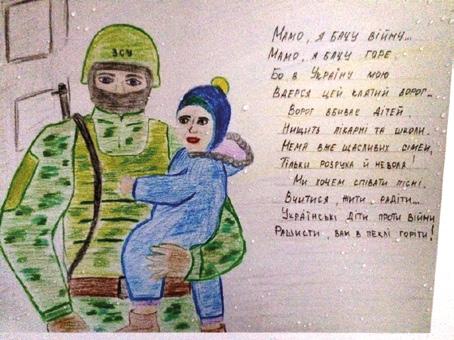 ЗСУ
Мамо, я бачу війну...
Мамо, я бачу горе,
Бо в Україну мою
Вдерся цей клятий ворог...
Ворог вбиває дітей,
Нищить лікарні та школи.
Нема вже щасливих сімей,
Тільки розруха й неволя!
Ми хочем співати пісні.
Вчитися, жити, радіти...
Українські діти проти війни
Рашисти, вам в пеклі горіти!